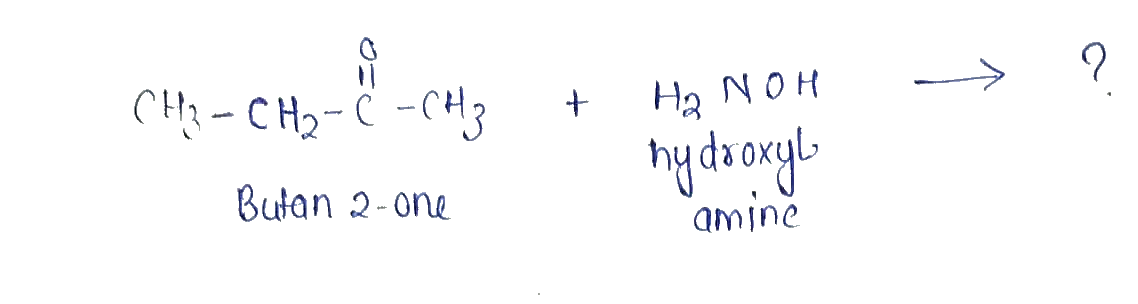 O
||
CH3-CH2-C-CH3 + H2NOH → ?
Butan 2-one
hydroxyl
amine